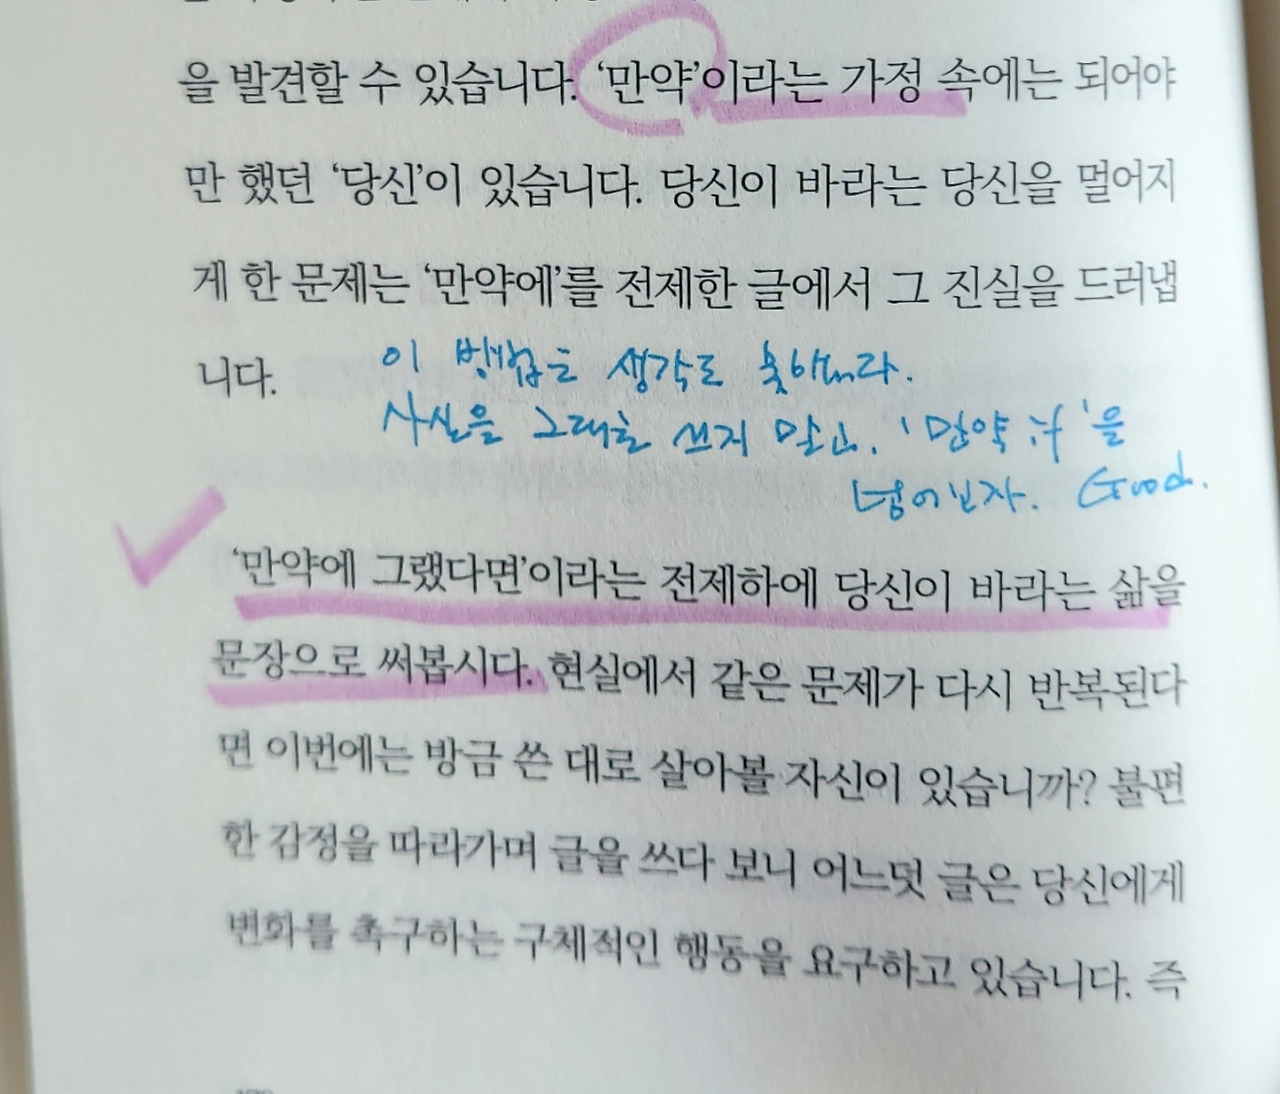 을 발견할 수 있습니다. ‘만약’이라는 가정 속에는 되어야
만 했던 ‘당신’이 있습니다. 당신이 바라는 당신을 멀어지
게 한 문제는 ‘만약에’를 전제한 글에서 그 진실을 드러냅
니다.
이 방법은 생각도 못해봤다.
사실을 그대로 쓰지 말고, '만약에'을
넣어보자. Good.
‘만약에 그랬다면’이라는 전제하에 당신이 바라는 삶을
문장으로 써봅시다. 현실에서 같은 문제가 다시 반복된다
면 이번에는 방금 쓴 대로 살아볼 자신이 있습니까? 불편
한 감정을 따라가며 글을 쓰다 보니 어느덧 글은 당신에게
변화를 촉구하는 구체적인 행동을 요구하고 있습니다. 즉